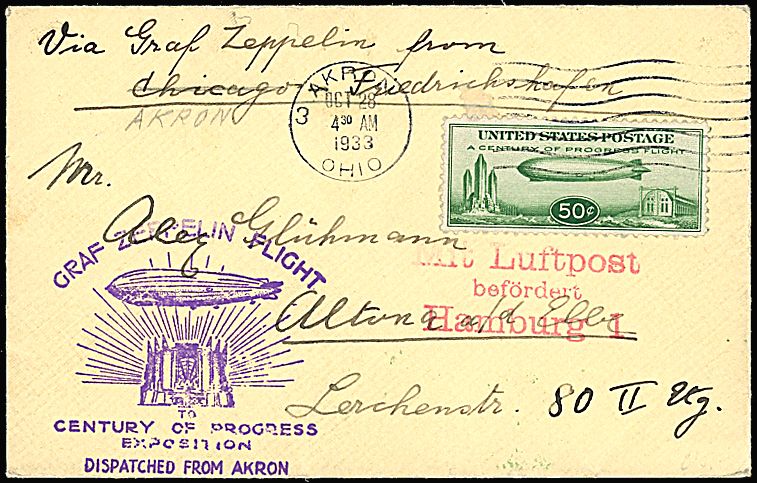 Via Graf Zeppelin from
Chicago Friedrichshafen
AKRON
AKRON
3
OCT 28
4 30 AM
1933
OHIO
UNITED STATES POSTAGE
A CENTURY OF PROGRESS FLIGHT
50¢
Mr.
Alex Glühmann
Altona a/d Elbe
Lerchenstr. 80 II Etg.
Mit Luftpost
befördert
Hamburg 1
GRAF ZEPPELIN FLIGHT
TO
CENTURY OF PROGRESS
EXPOSITION
DISPATCHED FROM AKRON